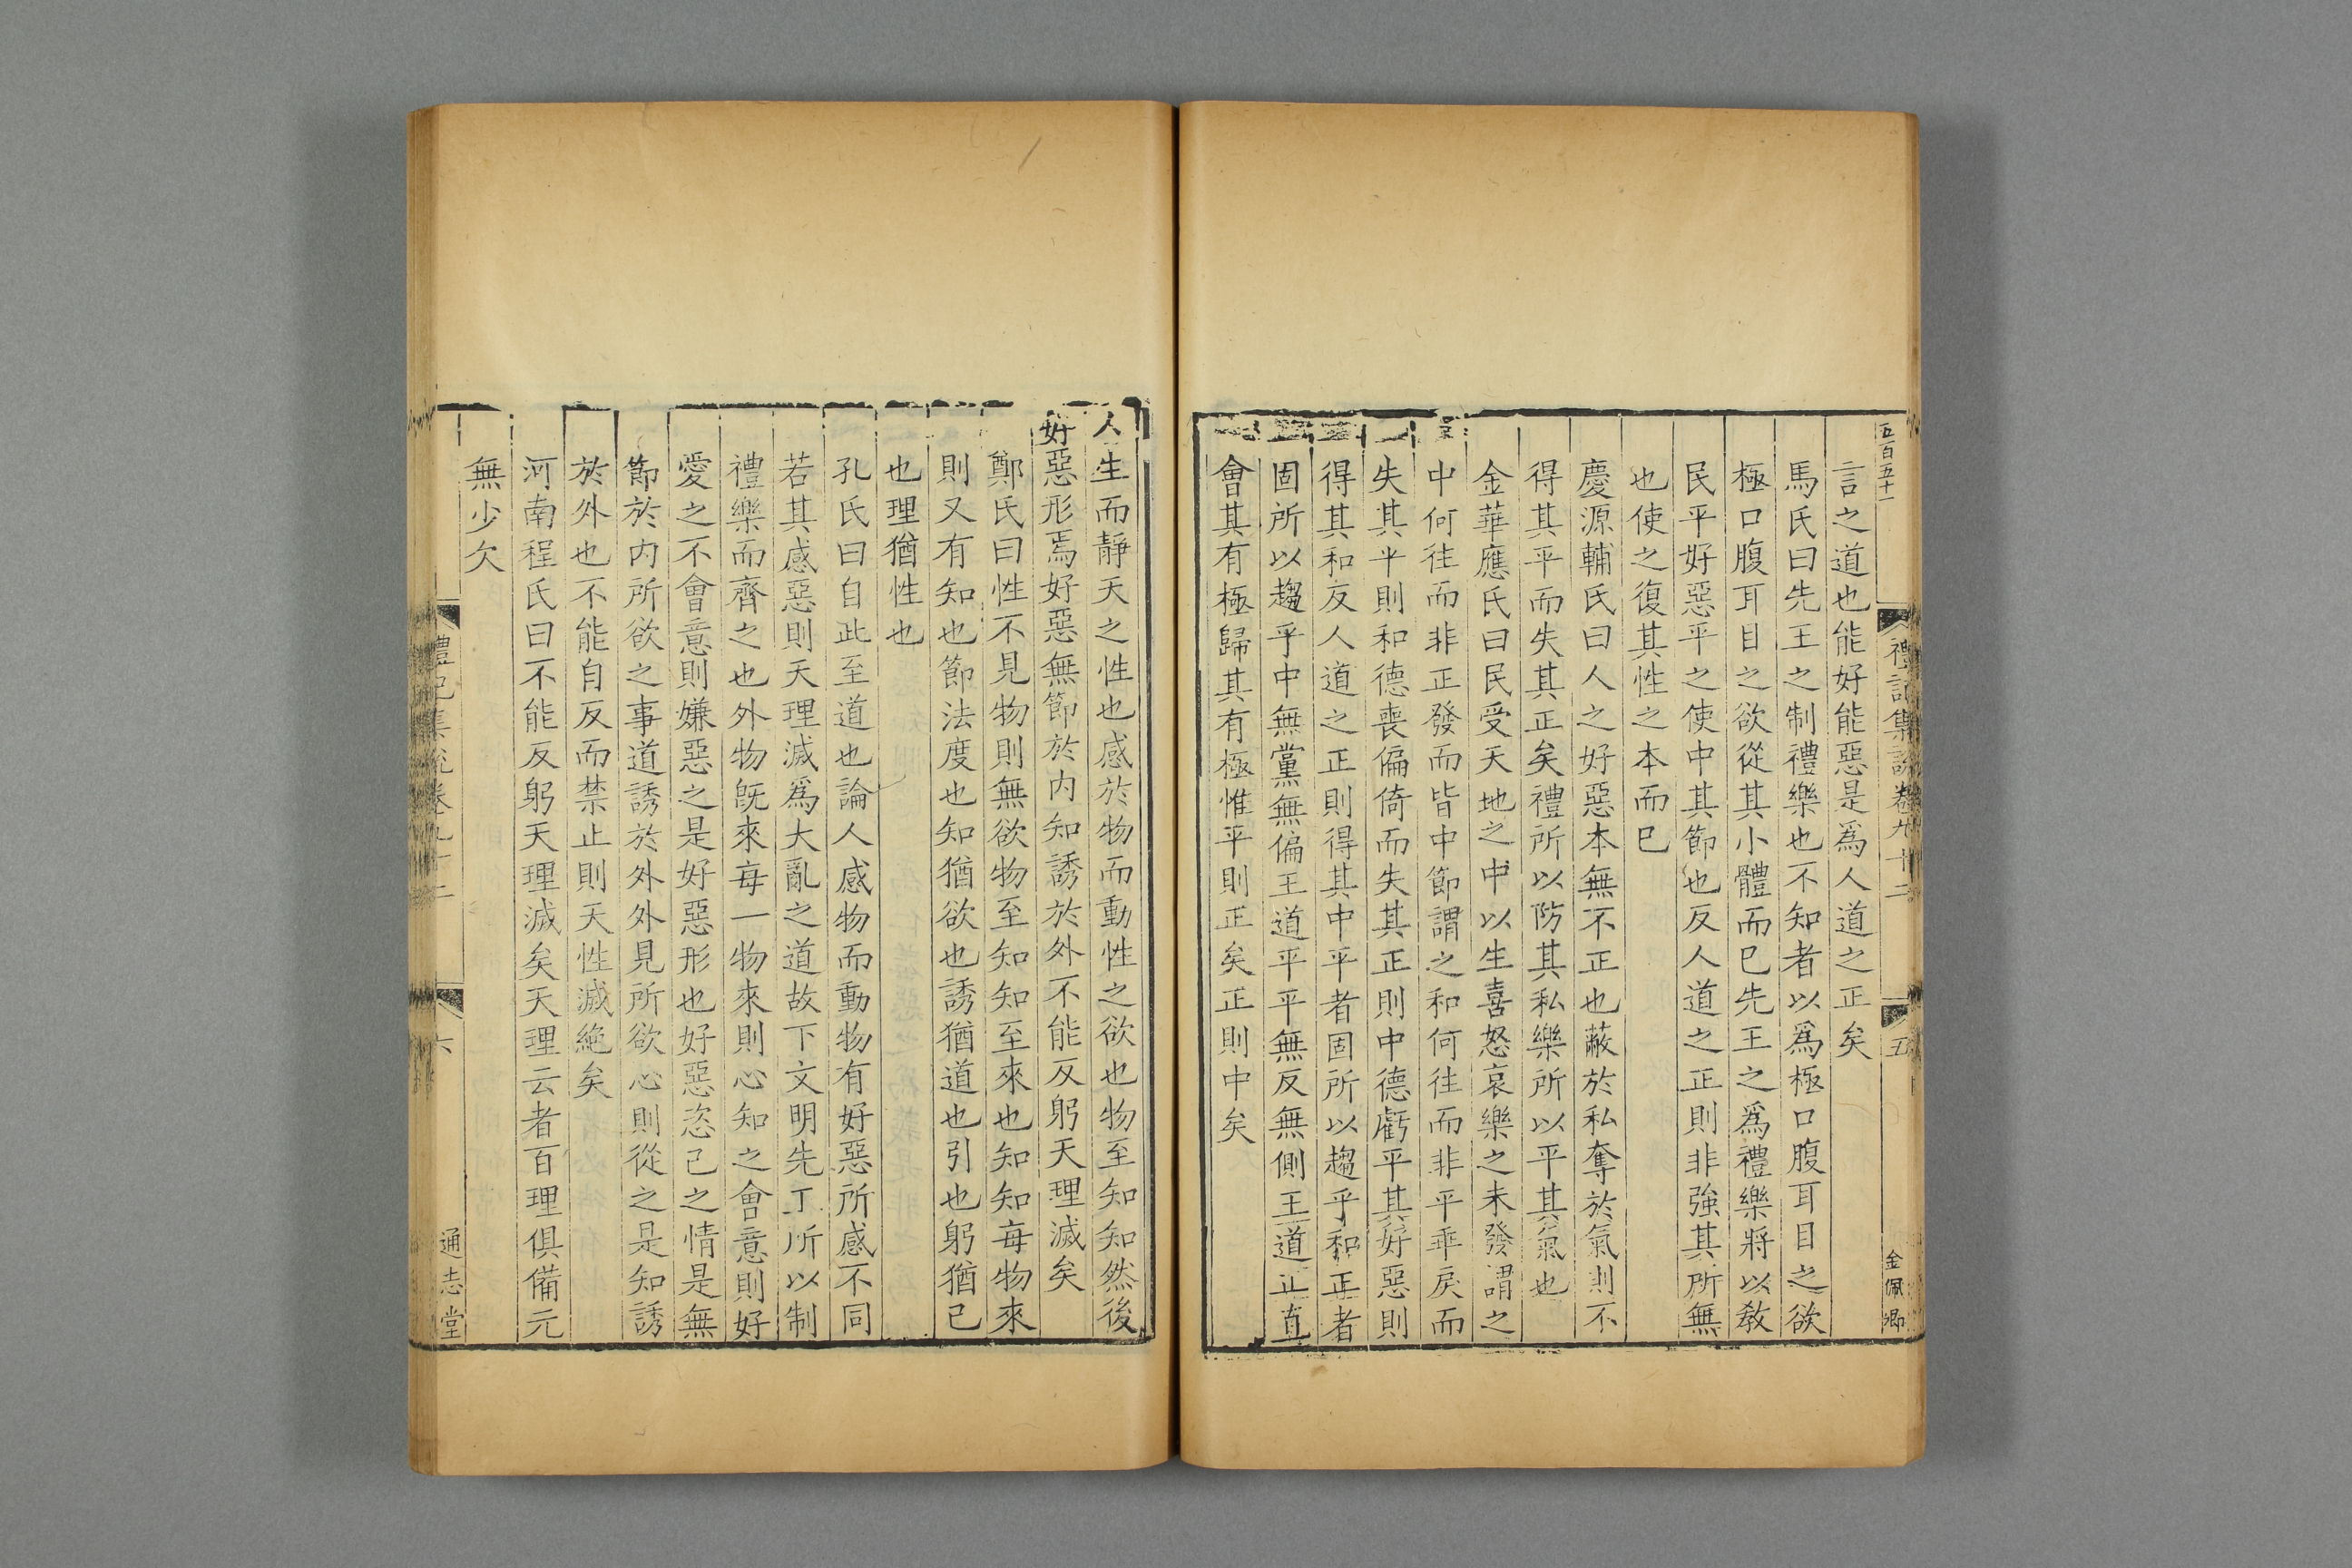 五百五十一
禮記集說卷九十二
五
金佩卿
言之道也能好能惡是爲人道之正矣
馬氏曰先王之制禮樂也不知者以爲極口腹耳目之欲
極口腹耳目之欲從其小體而已先王之爲禮樂將以敎
民平好惡平之使中其節也反人道之正則非強其所無
也使之復其性之本而已
慶源輔氏曰人之好惡本無不正也蔽於私奪於氣則不
得其平而失其正矣禮所以防其私樂所以平其氣也
金華應氏曰民受天地之中以生喜怒哀樂之未發謂之
中何往而非正發而皆中節謂之和何往而非平乖戾而
失其平則和德喪偏倚而失其正則中德虧平其好惡則
得其和反人道之正則得其中平者固所以趨乎和正者
固所以趨乎中無黨無偏王道平平無反無側王道正直
會其有極歸其有極惟平則正矣正則中矣
人生而靜天之性也感於物而動性之欲也物至知知然後
好惡形焉好惡無節於内知誘於外不能反躬天理滅矣
鄭氏曰性不見物則無欲物至知知至來也知知每物來
則又有知也節法度也知猶欲也誘猶道也引也躬猶已
也理猶性也
孔氏曰自此至道也論人感物而動物有好惡所感不同
若其感惡則天理滅爲大亂之道故下文明先丁所以制
禮樂而齊之也外物旣來每一物來則心知之會意則好
愛之不會意則嫌惡之是好惡形也好惡恣己之情是無
節於内所欲之事道誘於外外見所欲心則從之是知誘
於外也不能自反而禁止則天性滅絶矣
河南程氏曰不能反躬天理滅矣天理云者百理俱備元
無少欠
禮記集說卷九十二
六
通志堂